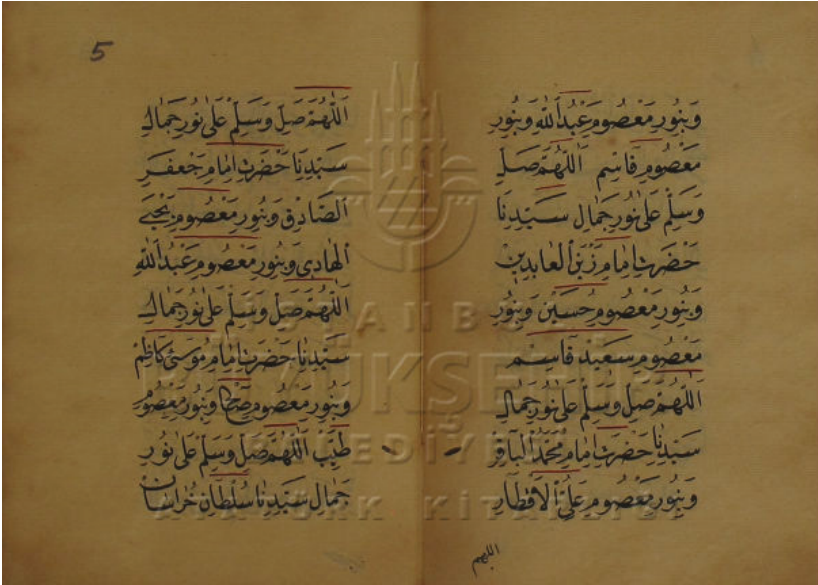 وَبِنُورِ مَعْصُومِ عَبْدُاللّٰهِ وَبِنُورِ
مَعْصُومِ قَاسِم اَللّٰهُمَّ صَلِّ
وَسَلِّمْ عَلٰى نُورِ جَمَالِ سَيِّدِنَا
حَضْرَتِ اِمَامِ زَيْنَ الْعَابِدِينْ
وَبِنُورِ مَعْصُومِ حُسَيْنْ وَبِنُورِ
مَعْصُومِ سَعِيد قَاسِمْ
اَللّٰهُمَّ صَلِّ وَسَلِّمْ عَلٰى نُورِ جَمَالِ
سَيِّدِنَا حَضْرَتِ اِمَامِ مُحَمَّدُ الْبَاقِرْ
وَبِنُورِ مَعْصُومِ عَلِىُّ الْاَفْطَارِ
اللهم
5
اَللّٰهُمَّ صَلِّ وَسَلِّمْ عَلٰى نُورِ جَمَالِ
سَيِّدِنَا حَضْرَتِ اِمَامِ جَعْفَرِ
الصَّادِقْ وَبِنُورِ مَعْصُومِ يَحْيَى
الْهَادِى وَبِنُورِ مَعْصُومِ عَبْدُاللّٰهِ
اَللّٰهُمَّ صَلِّ وَسَلِّمْ عَلٰى نُورِ جَمَالِ
سَيِّدِنَا حَضْرَتِ اِمَامِ مُوسَى كَاظِمْ
وَبِنُورِ مَعْصُومِ وَبِنُورِ مَعْصُومِ
طَيِّبْ اَللّٰهُمَّ صَلِّ وَسَلِّمْ عَلٰى نُورِ
جَمَالِ سَيِّدِنَا سُلْطَانِ خُرَاسَانْ
İSTANBUL
BÜYÜKŞEHİR
BELEDİYESİ
ATATÜRK KİTAPLIĞI